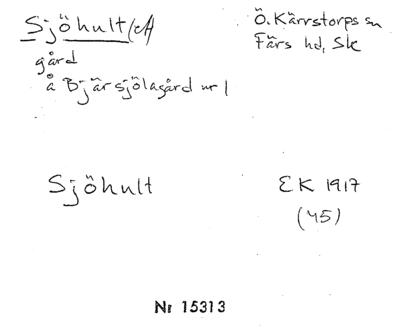 Sjöhult (A)
Ö. Kärrstorps sn
Färs hd, Sk
gård
å Bjärsjölagård nr 1
Sjöhult
EK 1917
(45)
Nr 15313